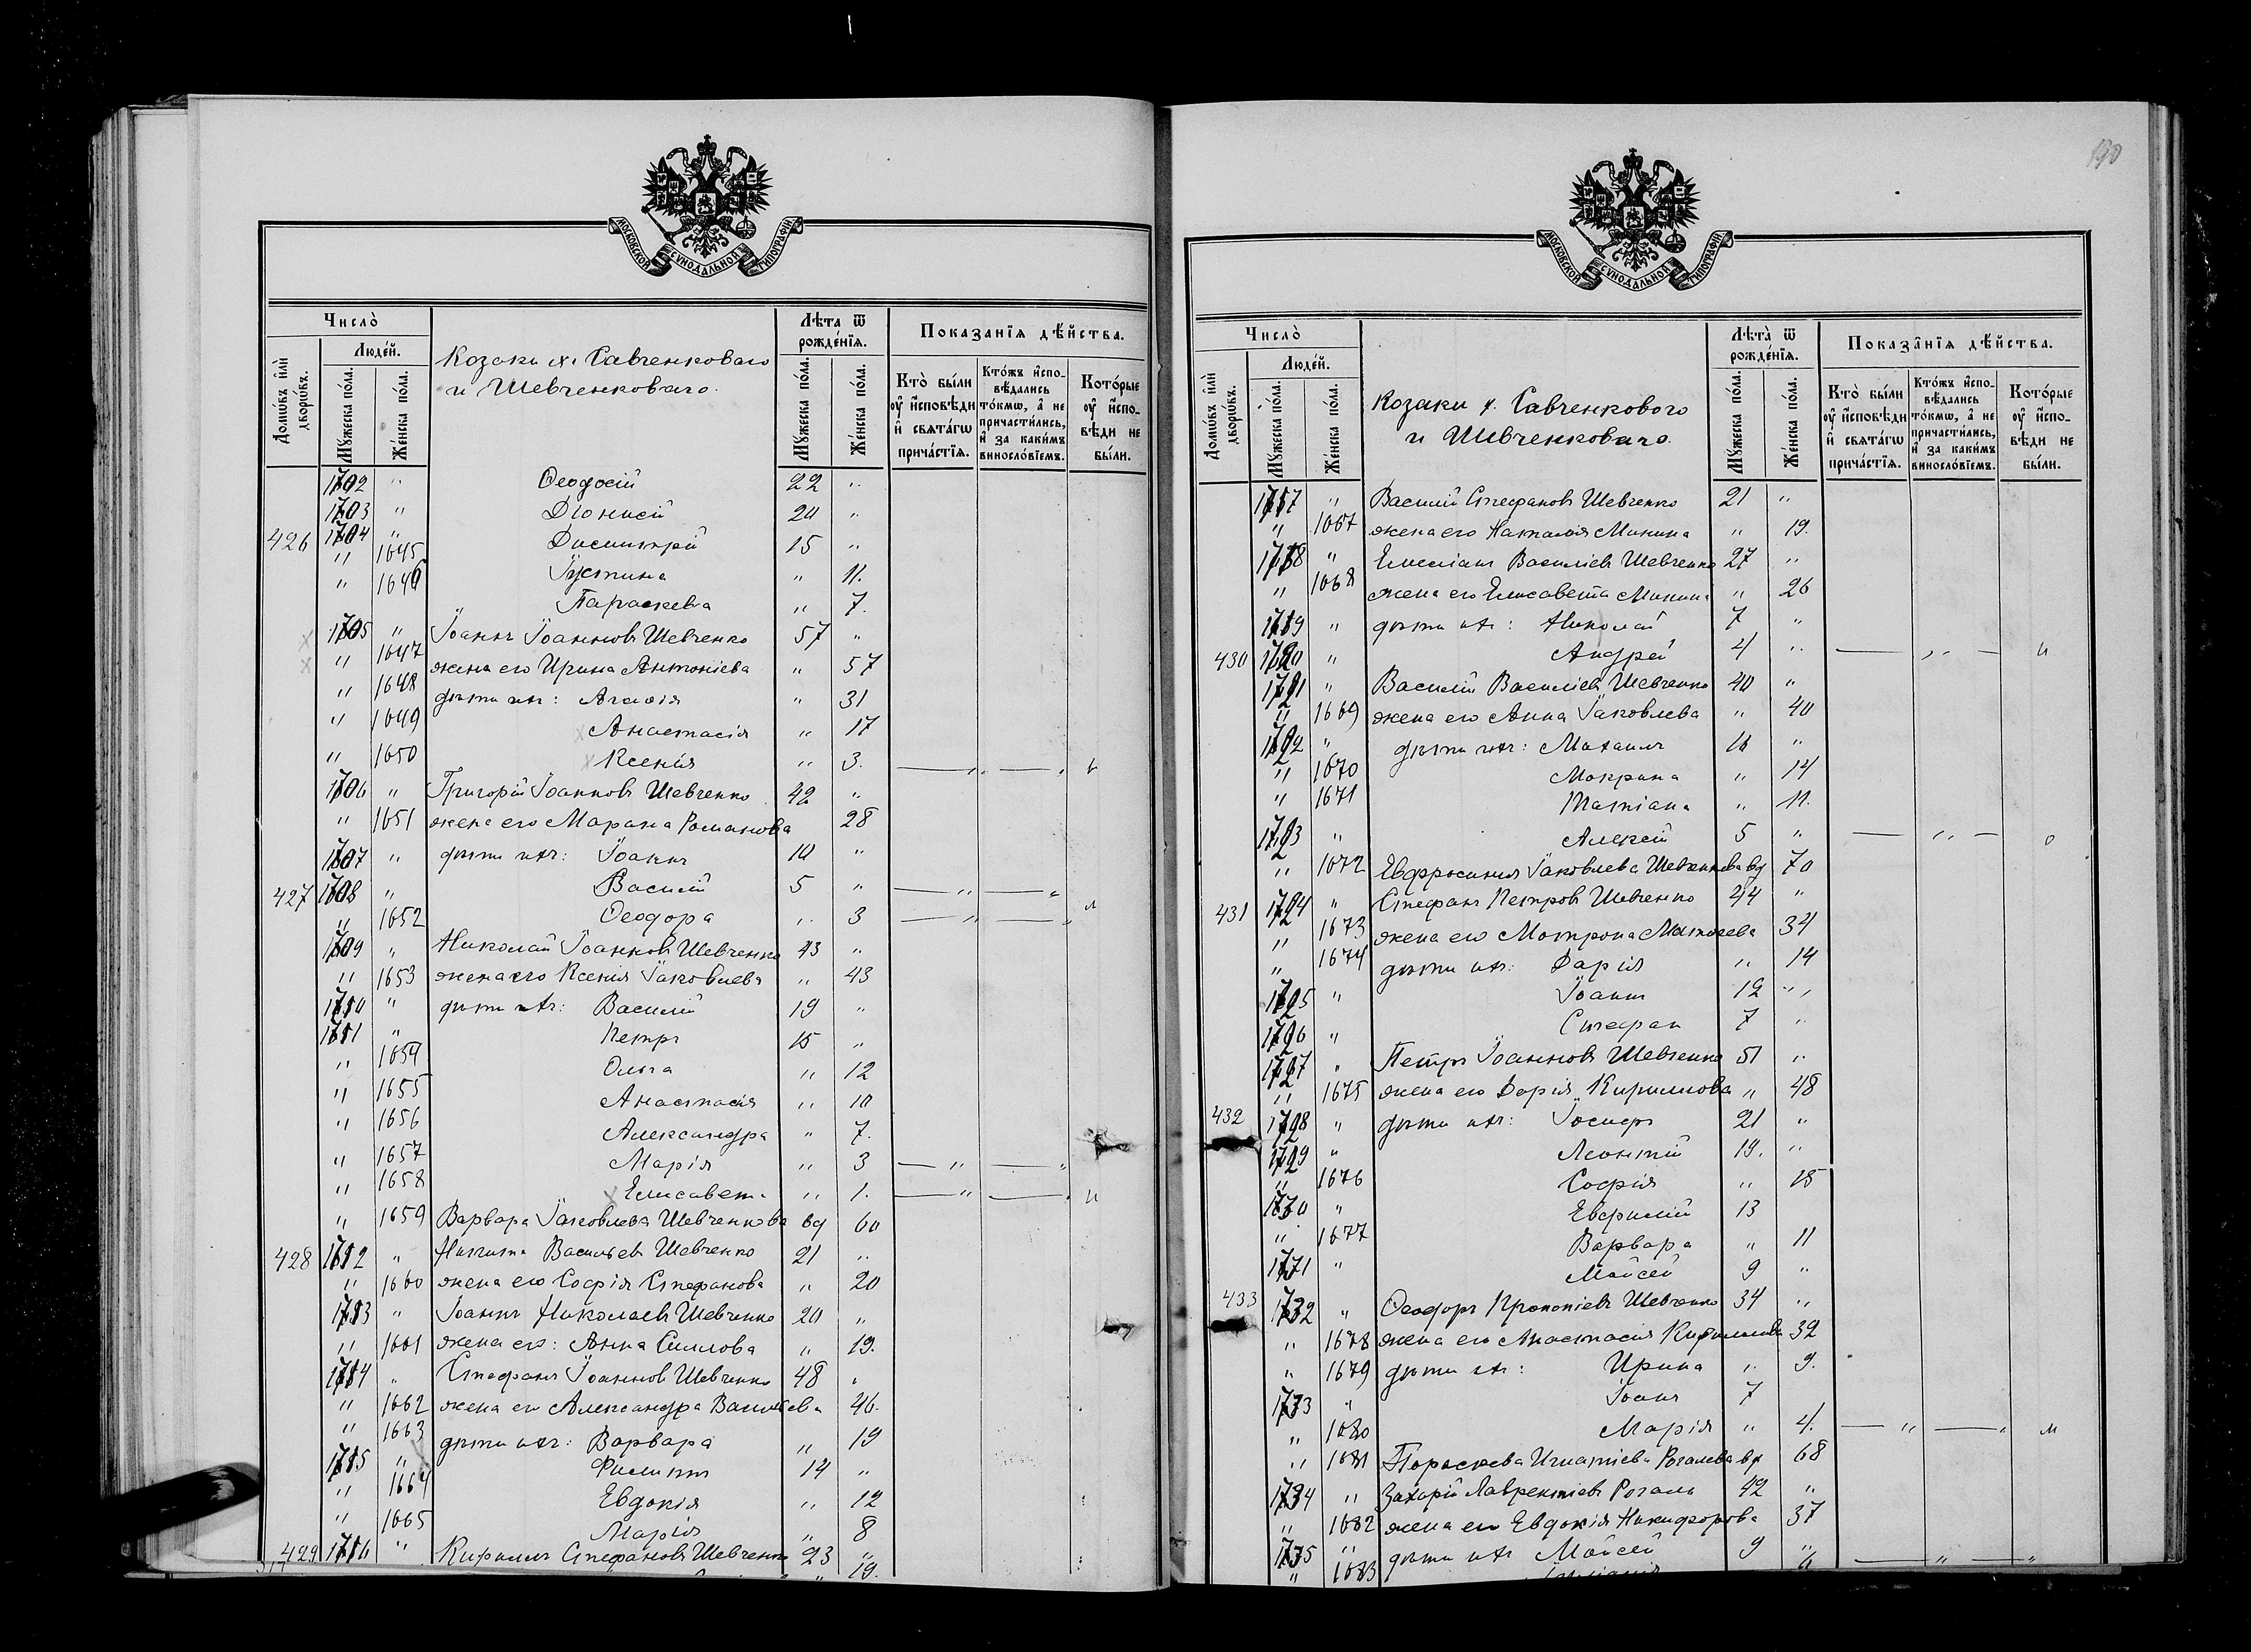 МОСКОВСКОЙ СѴНОДАЛЬНОЙ ТИПОГРАФІИ.
Число̀
Людéй.
Домѡ́въ и҆лѝ дворѡ́въ.
Мꙋ́жеска по́ла.
Же́нска по́ла.
Козаки х. Савченковаго
и Шевченковаго.
Лѣ́та ѿ рожде́нїѧ.
Мꙋ́жеска по́ла.
Же́нска по́ла.
Показа̑нїѧ дѣ́йства.
Кто̀ бы́ли оу҆ и҆́сповѣди и҆ свѧта́гѡ прича́стїѧ.
Кто́жъ и҆спо-вѣ́дались то́кмѡ, а҆ не причасти́лись, и҆ за каки́мъ винословїемъ.
Кото́рые оу҆ и҆́спо-вѣди не бы́ли.
1702 " Ѳеодосій 22 "
1703 " Діонисій 20 "
426 1704 " Димитрій 15 "
" 1645 Іустина " 11.
" 1646 Параскева " 7.
1705 " Іоаннъ Іоанновъ Шевченко 57 "
" 1647 жена его Ирина Антоніева " 57
" 1648 дѣти ихъ: Агафія " 31
" 1649 Анастасія " 17
" 1650 Ксенія " 3.
1706 " Григорій Іоанновъ Шевченко 42 "
" 1651 жена его Марина Романова 28
1707 " дѣти ихъ: Іоаннъ 10 "
427 1708 " Василій 5 "
" 1652 Ѳеодора " 3
1709 " Николай Іоанновъ Шевченко 43 "
" 1653 жена его Ксенія Іаковлева " 43
1710 " дѣти ихъ: Василій 19 "
1711 " Петръ 15 "
" 1654 Ольга " 12
" 1655 Анастасія " 10
" 1656 Александра " 7.
" 1657 Марія " 3
" 1658 Елисавета " 1.
" 1659 Варвара Іаковлева Шевченкова вд 60
428 1712 " Никита Васильевъ Шевченко 21 "
" 1660 жена его Софія Стефанова " 20
1713 " Іоаннъ Николаевъ Шевченко 20 "
" 1661 жена его: Анна " 19.
1714 " Стефанъ Іоанновъ Шевченко 48 "
" 1662 жена его Александра Васильева 46.
" 1663 дѣти ихъ: Варвара " 19
1715 " Филиппъ 14 "
" 1664 Евдокія " 12
" 1665 Марія " 8
429 1716 " Кириллъ Стефановъ Шевченко 23 "
19.
190
МОСКОВСКОЙ СѴНОДАЛЬНОЙ ТИПОГРАФІИ.
Число̀
Людéй.
Домѡ́въ и҆лѝ дворѡ́въ.
Мꙋ́жеска по́ла.
Же́нска по́ла.
Козаки х. Савченкового
и Шевченковаго.
Лѣ́та ѿ рожде́нїѧ.
Мꙋ́жеска по́ла.
Же́нска по́ла.
Показа̑нїѧ дѣ́йства.
Кто̀ бы́ли оу҆ и҆́сповѣди и҆ свѧта́гѡ прича́стїѧ.
Кто́жъ и҆спо-вѣ́дались то́кмѡ, а҆ не причасти́лись, и҆ за каки́мъ винословїемъ.
Кото́рые оу҆ и҆́спо-вѣди не бы́ли.
1717 " Василій Стефановъ Шевченко 21 "
" 1667 жена его Наталія Минина " 19.
1718 " Емеліанъ Василіевъ Шевченко 27 "
" 1668 жена его Елисавета Минина " 26
1719 " дѣти ихъ: Николай 7 "
430 1720 " Андрей 4 "
1721 " Василій Василіевъ Шевченко 40 "
" 1669 жена его Анна Іаковлева " 40
1722 " дѣти ихъ: Михаилъ 16 "
" 1670 Макрина " 14
" 1671 Татіана " 11.
1723 " Алексій 5 "
" 1672 Евфросинія Іаковлева Шевченкова вд 70
431 1724 " Стефанъ Петровъ Шевченко 44 "
" 1673 жена его Матрона Матвеева 34
" 1674 дѣти ихъ: Дарія " 14
1725 " Іоаннъ 12 "
1726 " Стефан 7 "
1727 " Петръ Іоанновъ Шевченко 51 "
" 1675 жена его Дарія Кириллова " 48
432 1728 " дѣти ихъ: Іосифъ 21 "
1729 " Леонтій 19. "
" 1676 Софія " 15
1730 " Евфимій 13
" 1677 Варвара " 11
1731 " Моисей 9 "
433 1732 " Ѳеодоръ Прокопіевъ Шевченко 34 "
" 1678 жена его Анастасія Кириллова 32
" 1679 дѣти ихъ: Ирина " 9.
1733 " Іоанн 7
" 1680 Марія " 4.
" 1681 Параскева Игнатіева Рогалева вд 68
1734 " Захарій Лаврентіевъ Рогаль 42 "
" 1682 жена его Евдокія Никифорова 37
1735 " дѣти ихъ Моисей 9 "
" 1683